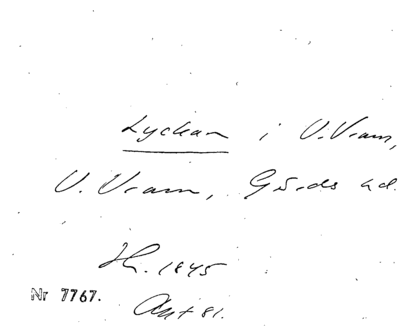 Lyckan i V. Vram,
V. Vram, Gärds hd.
Sk. 1845
Nr 7767.
Akt 81.